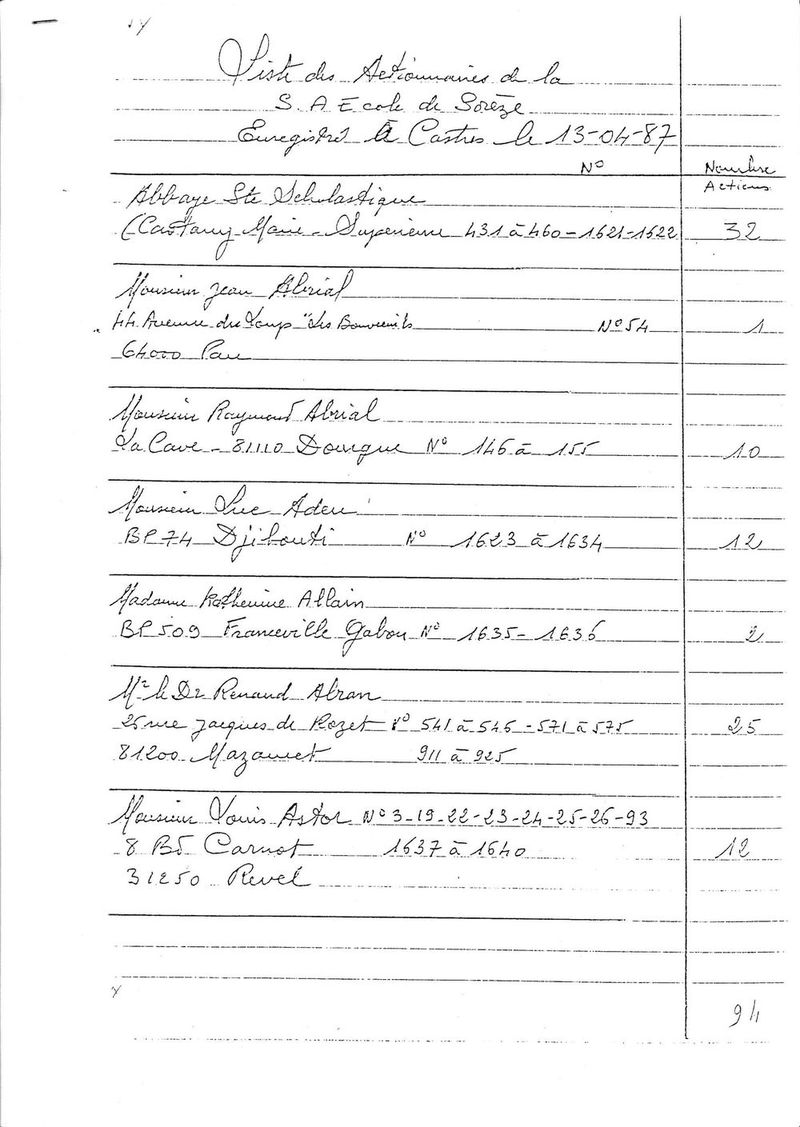 Liste des Actionnaires de la
S.A Ecole de Sorèze
Enregistré à Castres le 13-04-87
N° Nombre
Actions
Abbaye Ste Scholastique
(Castany Marie - Supérieure 431 à 460 - 1621-1622 32
Monsieur Jean Abrial
44 Avenue du Loup "Les Bouvreuils N° 54 1
64000 Pau
Monsieur Raymond Abrial
La Cave - 81110 Dourgne N° 146 à 155 10
Monsieur Luc Aden
BP 74 Djibouti N° 1623 à 1634 12
Madame Katherine Allain
BP 509 Franceville Gabon N° 1635 - 1636 2
Mr le Dr Renaud Abran
26 rue Jacques de Rozet N° 541 à 545 - 571 à 575 25
81200 Mazamet 911 à 925
Monsieur Louis Astor N° 3-19-22-23-24-25-26-93
8 Bd Carnot 1637 à 1640 12
31250 Revel
94